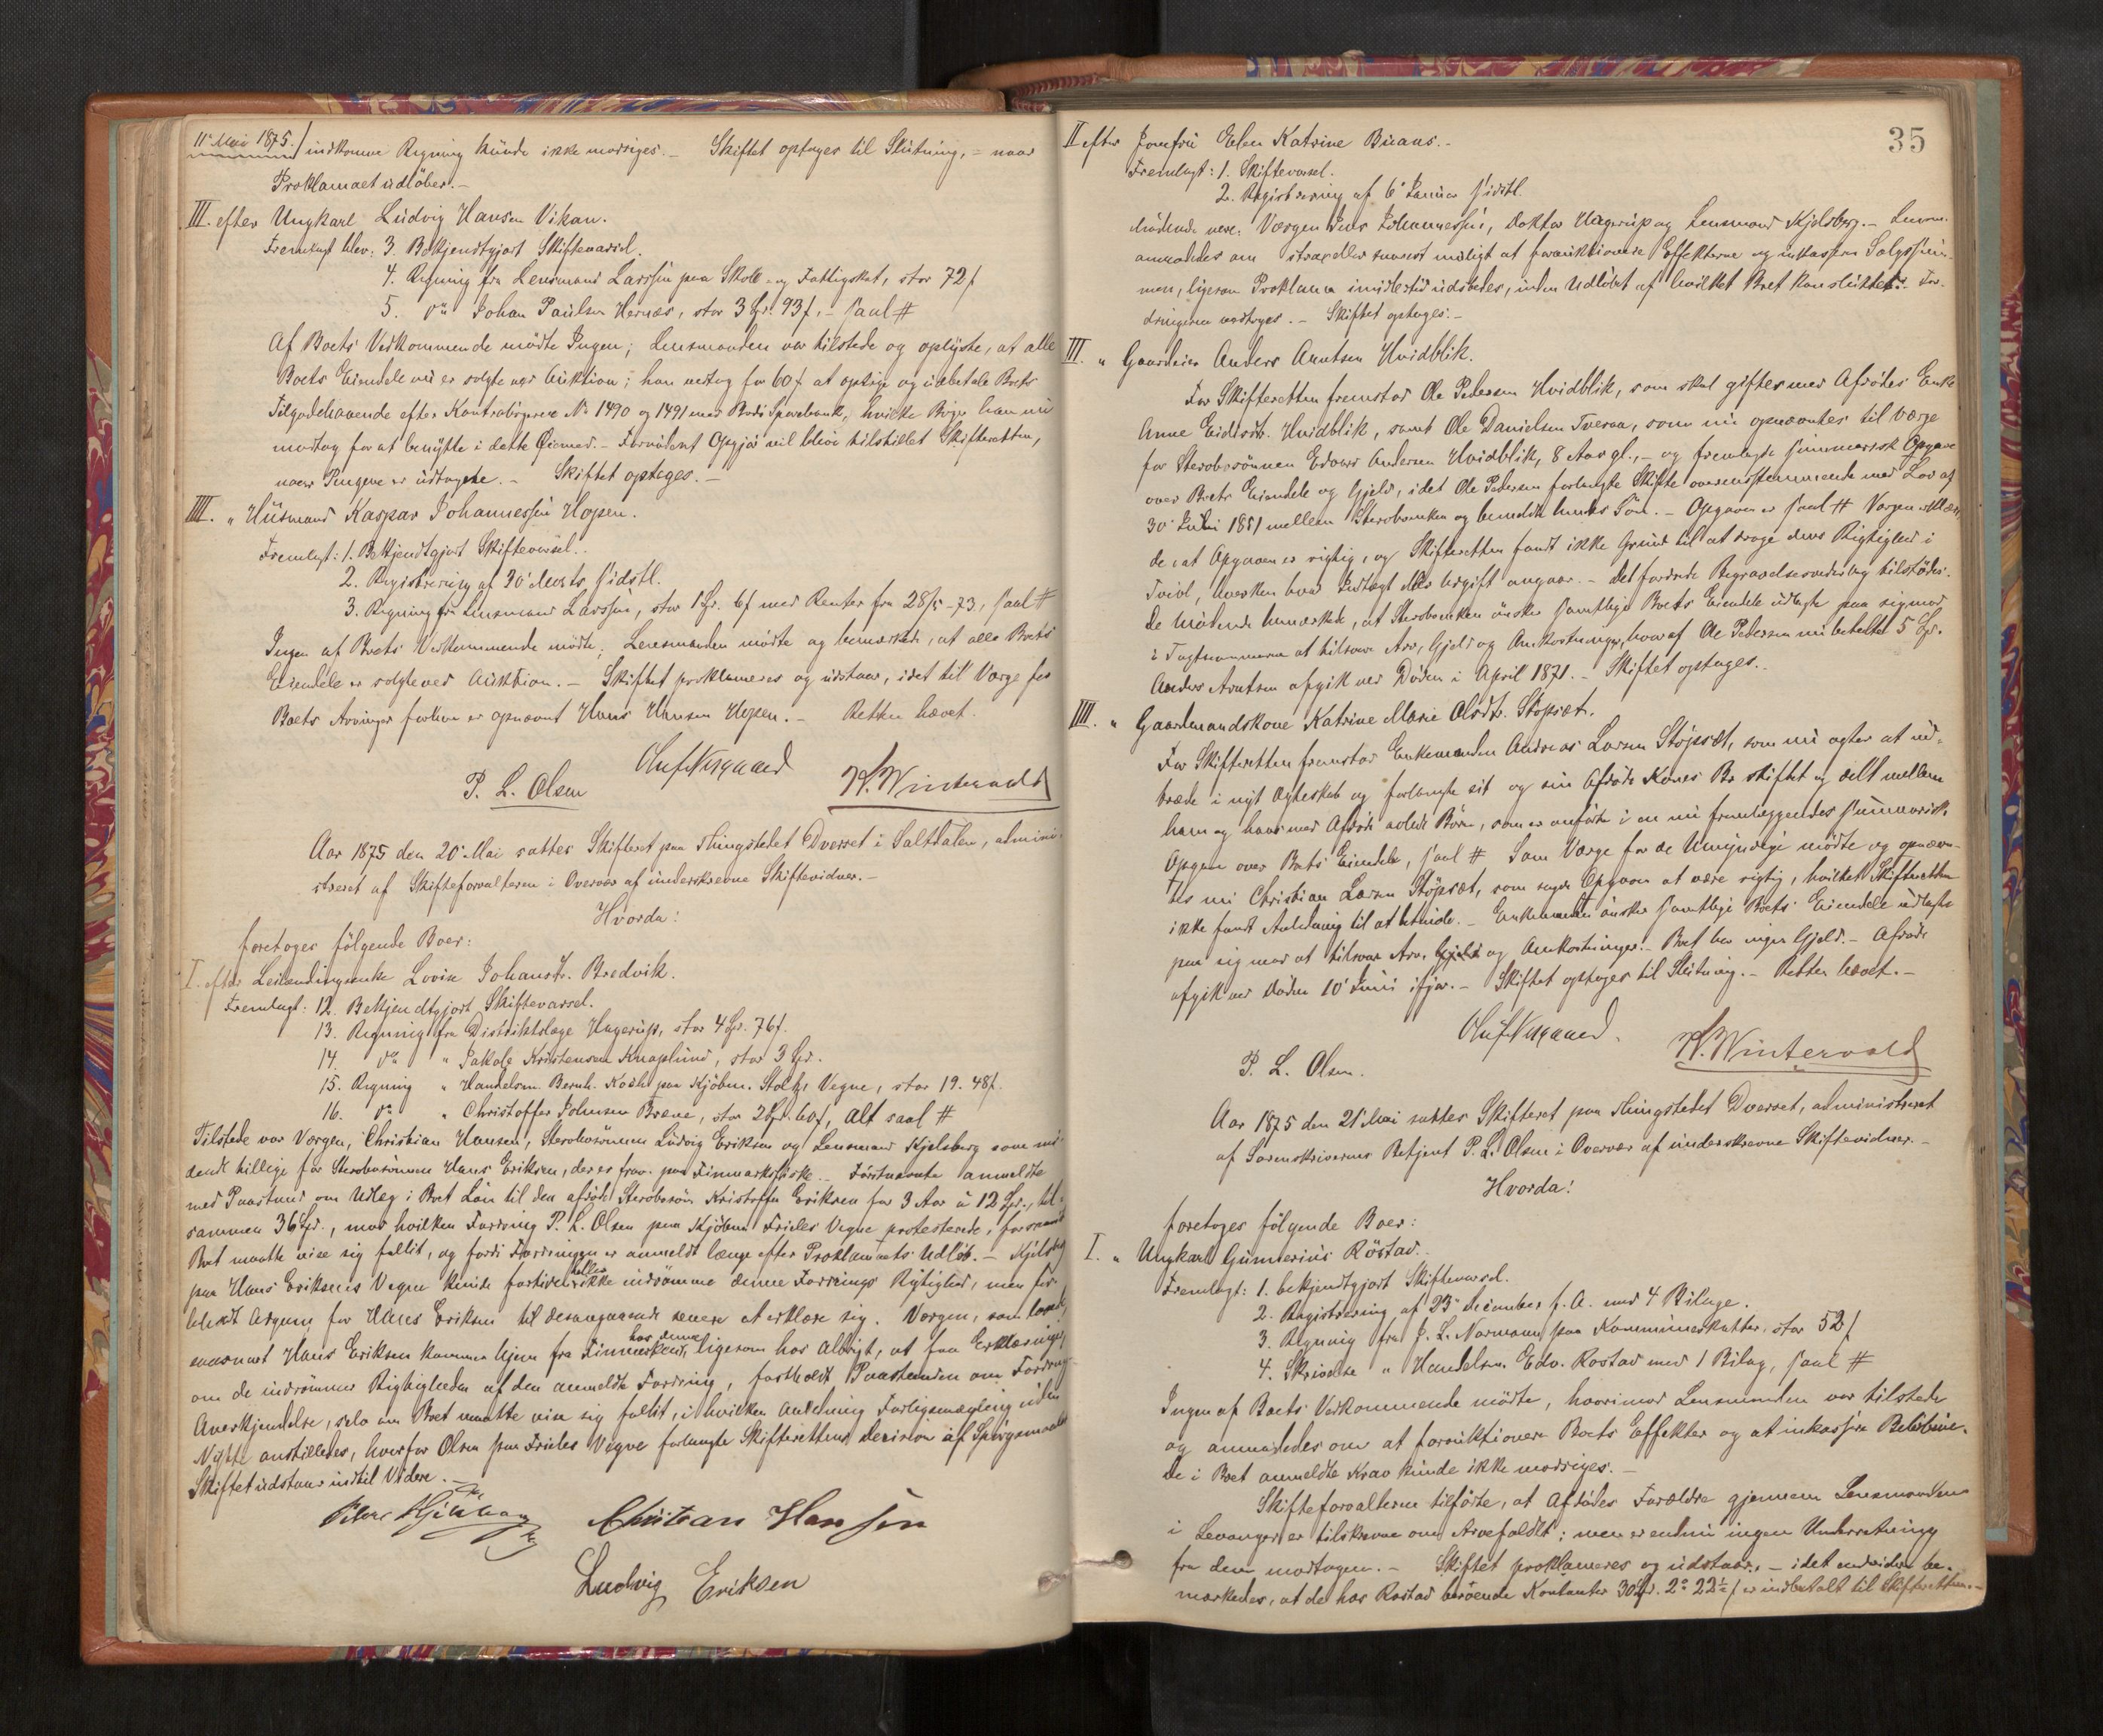 11' Mai 1875. / indkomne Regning kunde ikke modsiges. – Skiftet optages til Slutning, – naar
Proklamaet udlöber. –
III. efter Ungkarl Ludvig Hansen Vikan.
Fremlagt blev: 3. Bekjendtgjort Skiftevarsel.
4. Regning fra Lensmand Larssen paa Skole- og Fattigskat, stor 72 f
5. do Johan Paulsen Hernæs, stor 3 Spd. 93 f. – saal #
Af Boets Vedkommende mödte Ingen; Lensmanden var tilstede og oplyste, at alle
Boets Eiendele nu er solgte ved Auktion; han vedtog for 60 f at opsige og udbetale Boets
Tilgodehavende efter Kontrabögerne No 1490 og 1491 med Bodö Sparebank, hvilke Böger han nu
modtog for at benytte i dette Öiemed. – Fornödent Opgjör vil blive tilstillet Skifteretten,
naar Pengene er udtagne. – Skiftet optages. –
IIII. " Husmand Kaspar Johannessen Hopen.
Fremlagt: 1. Bekjendtgjort Skiftevarsel.
2. Registrering af 30' Marts sidstl.
3. Regning fra Lensmand Larssen, stor 1 Spd. 6 f med Renter fra 28/5 – 73, saal #
Ingen af Boets Vedkommende mödte. Lensmanden mödte og bemærkede, at alle Boets
Eiendele er solgte ved Auktion. – Skiftet proklameres og udstaar, idet til Værge for
Boets Arvinger forhen er opnævnt Hans Hansen Hopen. – Retten hævet.
Oluf Nysgaard
P. L. Olsen K. Wintervold
Aar 1875 den 20' Mai sattes Skifteret paa Thingstedet Dverset i Saltdalen, admini-
streret af Skifteforvalteren i Overvær af underskrevne Skiftevidner. –
Hvorda:
foretoges fölgende Boer:
I. efter Leilændingsenke Lovise Johansdtr. Bredvik.
Fremlagt: 12. Bekjendtgjort Skiftevarsel.
13. Regning fra Distriktslæge Hagerup, stor 4 Spd. 76 f.
14. do " Jakob Kristensen Knaplund, stor 3 Spd.
15. Regning " Handelsm. Bernh. Koch paa Kjöbm. Stoltz's Vegne, stor 19. 48 f.
16. do " Christoffer Johnsen Bræne, stor 2 Spd. 60 f, alt saal #
Tilstede var Værgen, Christian Hansen, Sterbosönnen Ludvig Eriksen og Lensmand Kjelsberg som mö-
dende tillige for Sterbosönnen Hans Eriksen, der er frav. paa Finmarksfiske. – Förstnævnte anmeldte
med Paastand om Udlæg i Boet Lön til den afdöde Sterbosön Kristoffer Eriksen for 3 Aar à 12 Spd., til-
sammen 36 Spd., mod hvilken Fordring P. L. Olsen paa Kjöbm. Frieles Vegne protesterede, forsaavidt
Boet maatte vise sig fallit, og fordi Fordringen er anmeldt længe efter Proklamaets Udlöb. – Kjelsberg
paa Hans Eriksens Vegne kunde fortiden heller ikke indrömme denne Fordrings Rigtighed, men for-
beholdt Adgang for Hans Eriksen til desangaaende senere at erklære sig. Værgen, som lovede
saasnart Hans Eriksen kommer hjem fra Finmarken, hos denne ligesom hos Albrigt, at faa Erklæring
om de indrömmer Rigtigheden af den anmeldte Fordring, fastholdt Paastanden om Fordringens
Anerkjendelse, selv om Boet maatte vise sig fallit, i hvilken Anledning Forligsmægling uden
Nytte anstilledes, hvorfor Olsen paa Frieles Vegne forlangte Skifterettens Decision af Spörgsmaalet
Skiftet udstaar indtil Videre. –
Christian Hansen
Ludvig Eriksen
35
II efter Jomfru Elen Katrine Buaas. –
Fremlagt: 1. Skiftevarsel.
2. Registrering af 6' Januar sidstl.
Mödende vare: Værgen Jens Johannessen, Doktor Hagerup og Lensmand Kjelsberg. – Lensm.
anmodedes om strax eller snarest muligt at forauktionere Effekterne og inkassere Salgssum-
men, ligesom Proklama imidlertid udstedes, inden Udlöbet af hvilket Boet kan sluttes. For-
dringerne vedtoges. – Skiftet optages. –
III. " Gaardeier Anders Arntsen Hvidblik.
For Skifteretten fremstod Ole Pedersen Hvidblik, som skal giftes med Afdödes Enke
Anne Eidisdtr. Hvidblik, samt Ole Danielsen Tveraa, som nu opnævntes til Værge
for Sterbosönnen Edvard Andersen Hvidblik, 8 Aar gl., – og fremlagde summarisk Opgave
over Boets Eiendele og Gjeld, idet Ole Pedersen forlangte Skifte overensstemmende med Lov af
30' Juli 1851 mellem Sterboenken og bemeldte hendes Sön. – Opgaven er saal # Værgen erklære-
de, at Opgaven er rigtig, og Skifteretten fandt ikke Grund til at drage dens Rigtighed i
Tvivl, hverken hvad Indtægt eller Udgift angaar. – Det fornödne Begravelsesvederlag tilstodes.
De Mödende bemærkede, at Sterboenken önsker samtlige Boets Eiendele udlagte paa sig mod
i Taxtsummerne at tilsvare Arv, Gjeld og Omkostninger, hvoraf Ole Pedersen nu betalte 5 Spd.
Anders Arntsen afgik ved Döden i April 1871. – Skiftet optages. –
IIII. " Gaardmandskone Katrine Marie Olsdtr. Stöpsæt.
For Skifteretten fremstod Enkemanden Andreas Larsen Stöpsæt, som nu agter at ind-
træde i nyt Ægteskab og forlangte sit og sin Afdöde Kones Bo skiftet og delt mellem
ham og hans med Afdöde avlede Börn, som er anförte i en nu fremlæggendes summarisk
Opgave over Boets Eiendele, saal # Som Værge for de Umyndige mödte og opnævn-
tes nu Christian Larsen Stöpsæt, som sagde Opgaven at være rigtig, hvilket Skifteretten
ikke fandt Anledning til at betvivle. – Enkemanden önsker samtlige Boets Eiendele udlagte
paa sig mod at tilsvare Arv, Gjeld og Omkostninger. – Boet har ingen Gjeld. – Afdöde
afgik ved Döden 10' Juni ifjor. – Skiftet optages til Slutning. – Retten hævet. –
Oluf Nysgaard.
P. L. Olsen. K. Wintervold
Aar 1875 den 21' Mai sattes Skifteret paa Thingstedet Dverset, administreret
af Sorenskriverens Betjent P. L. Olsen i Overvær af underskrevne Skiftevidner. –
Hvorda:
foretoges fölgende Boer:
I. " Ungkarl Gunnerius Röstad.
Fremlagt: 1. bekjendtgjort Skiftevarsel.
2. Registrering af 23' December f. A. med 4 Bilage.
3. Regning fra J. L. Normann paa Kommuneskatter, stor 52 f
4. Skrivelse " Handelsm. Edv. Rostad med 1 Bilag, saal #
Ingen af Boets Vedkommende mödte, hvorimod Lensmanden var tilstede
og anmodedes om at forauktionere Boets Effekter og at inkassere Belöbene.
De i Boet anmeldte Krav kunde ikke modsiges. –
Skifteforvalteren tilförte, at Afdödes Forældre gjennem Lensmanden
i Levanger er tilskrevne om Arvefaldet; men er endnu ingen Underretning
fra dem modtagen. – Skiftet proklameres og udstaar, – idet endvidere be-
mærkedes, at de hos Rostad beroende Kontanter 30 Spd. 2 22 1/2 f er indbetalt til Skifteretten. –